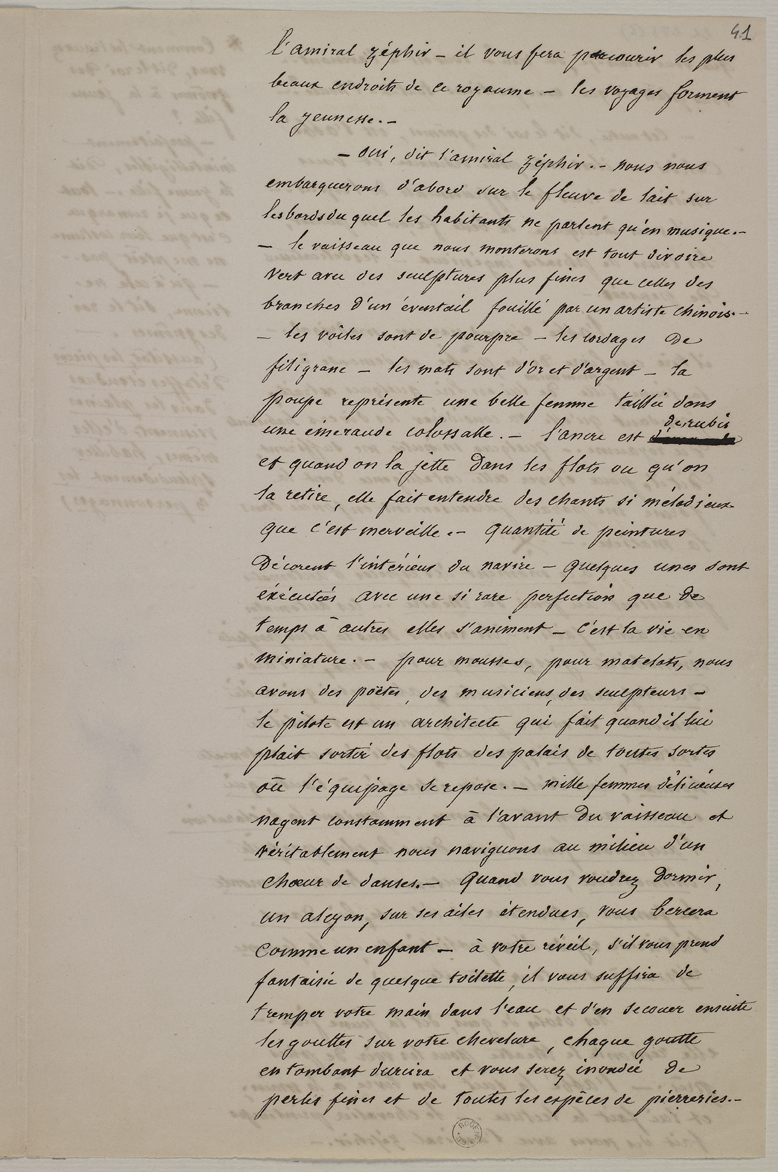 41
l'amiral zéphir – il vous fera parcourir les plus
beaux endroits de ce royaume – les voyages forment
la jeunesse. –
– oui, dit l'amiral zéphir. – nous nous
embarquerons d'abord sur le fleuve de lait sur
les bords du quel les habitants ne parlent qu'en musique. –
– le vaisseau que nous monterons est tout d'ivoire
vert avec des sculptures plus fines que celles des
branches d'un éventail fouillé par un artiste chinois. –
– les voiles sont de pourpre – les cordages de
filigrane – les mats sont d'or et d'argent – la
poupe représente une belle femme taillée dans
une émeraude colossale. – l'ancre est de rubis
et quand on la jette dans les flots ou qu'on
la retire, elle fait entendre des chants si mélodieux
que c'est merveille. – quantité de peintures
décorent l'intérieur du navire – quelques unes sont
éxécutées avec une si rare perfection que de
temps à autres elles s'animent – c'est la vie en
miniature. – pour mousses, pour matelots, nous
avons des poëtes, des musiciens, des sculpteurs –
le pilote est un architecte qui fait quand il lui
plait sortir des flots des palais de toutes sortes
où l'équipage se repose. – mille femmes délicieuses
nagent constamment à l'avant du vaisseau et
véritablement nous naviguons au milieu d'un
chœur de danses. – quand vous voudrez dormir,
un alcyon, sur ses ailes étendues, vous bercera
comme un enfant – à votre réveil, s'il vous prend
fantaisie de quelque toilette, il vous suffira de
tremper votre main dans l'eau et d'en secouer ensuite
les gouttes sur votre chevelure, chaque goutte
en tombant durcira et vous serez inondée de
perles fines et de toutes les espèces de pierreries. –